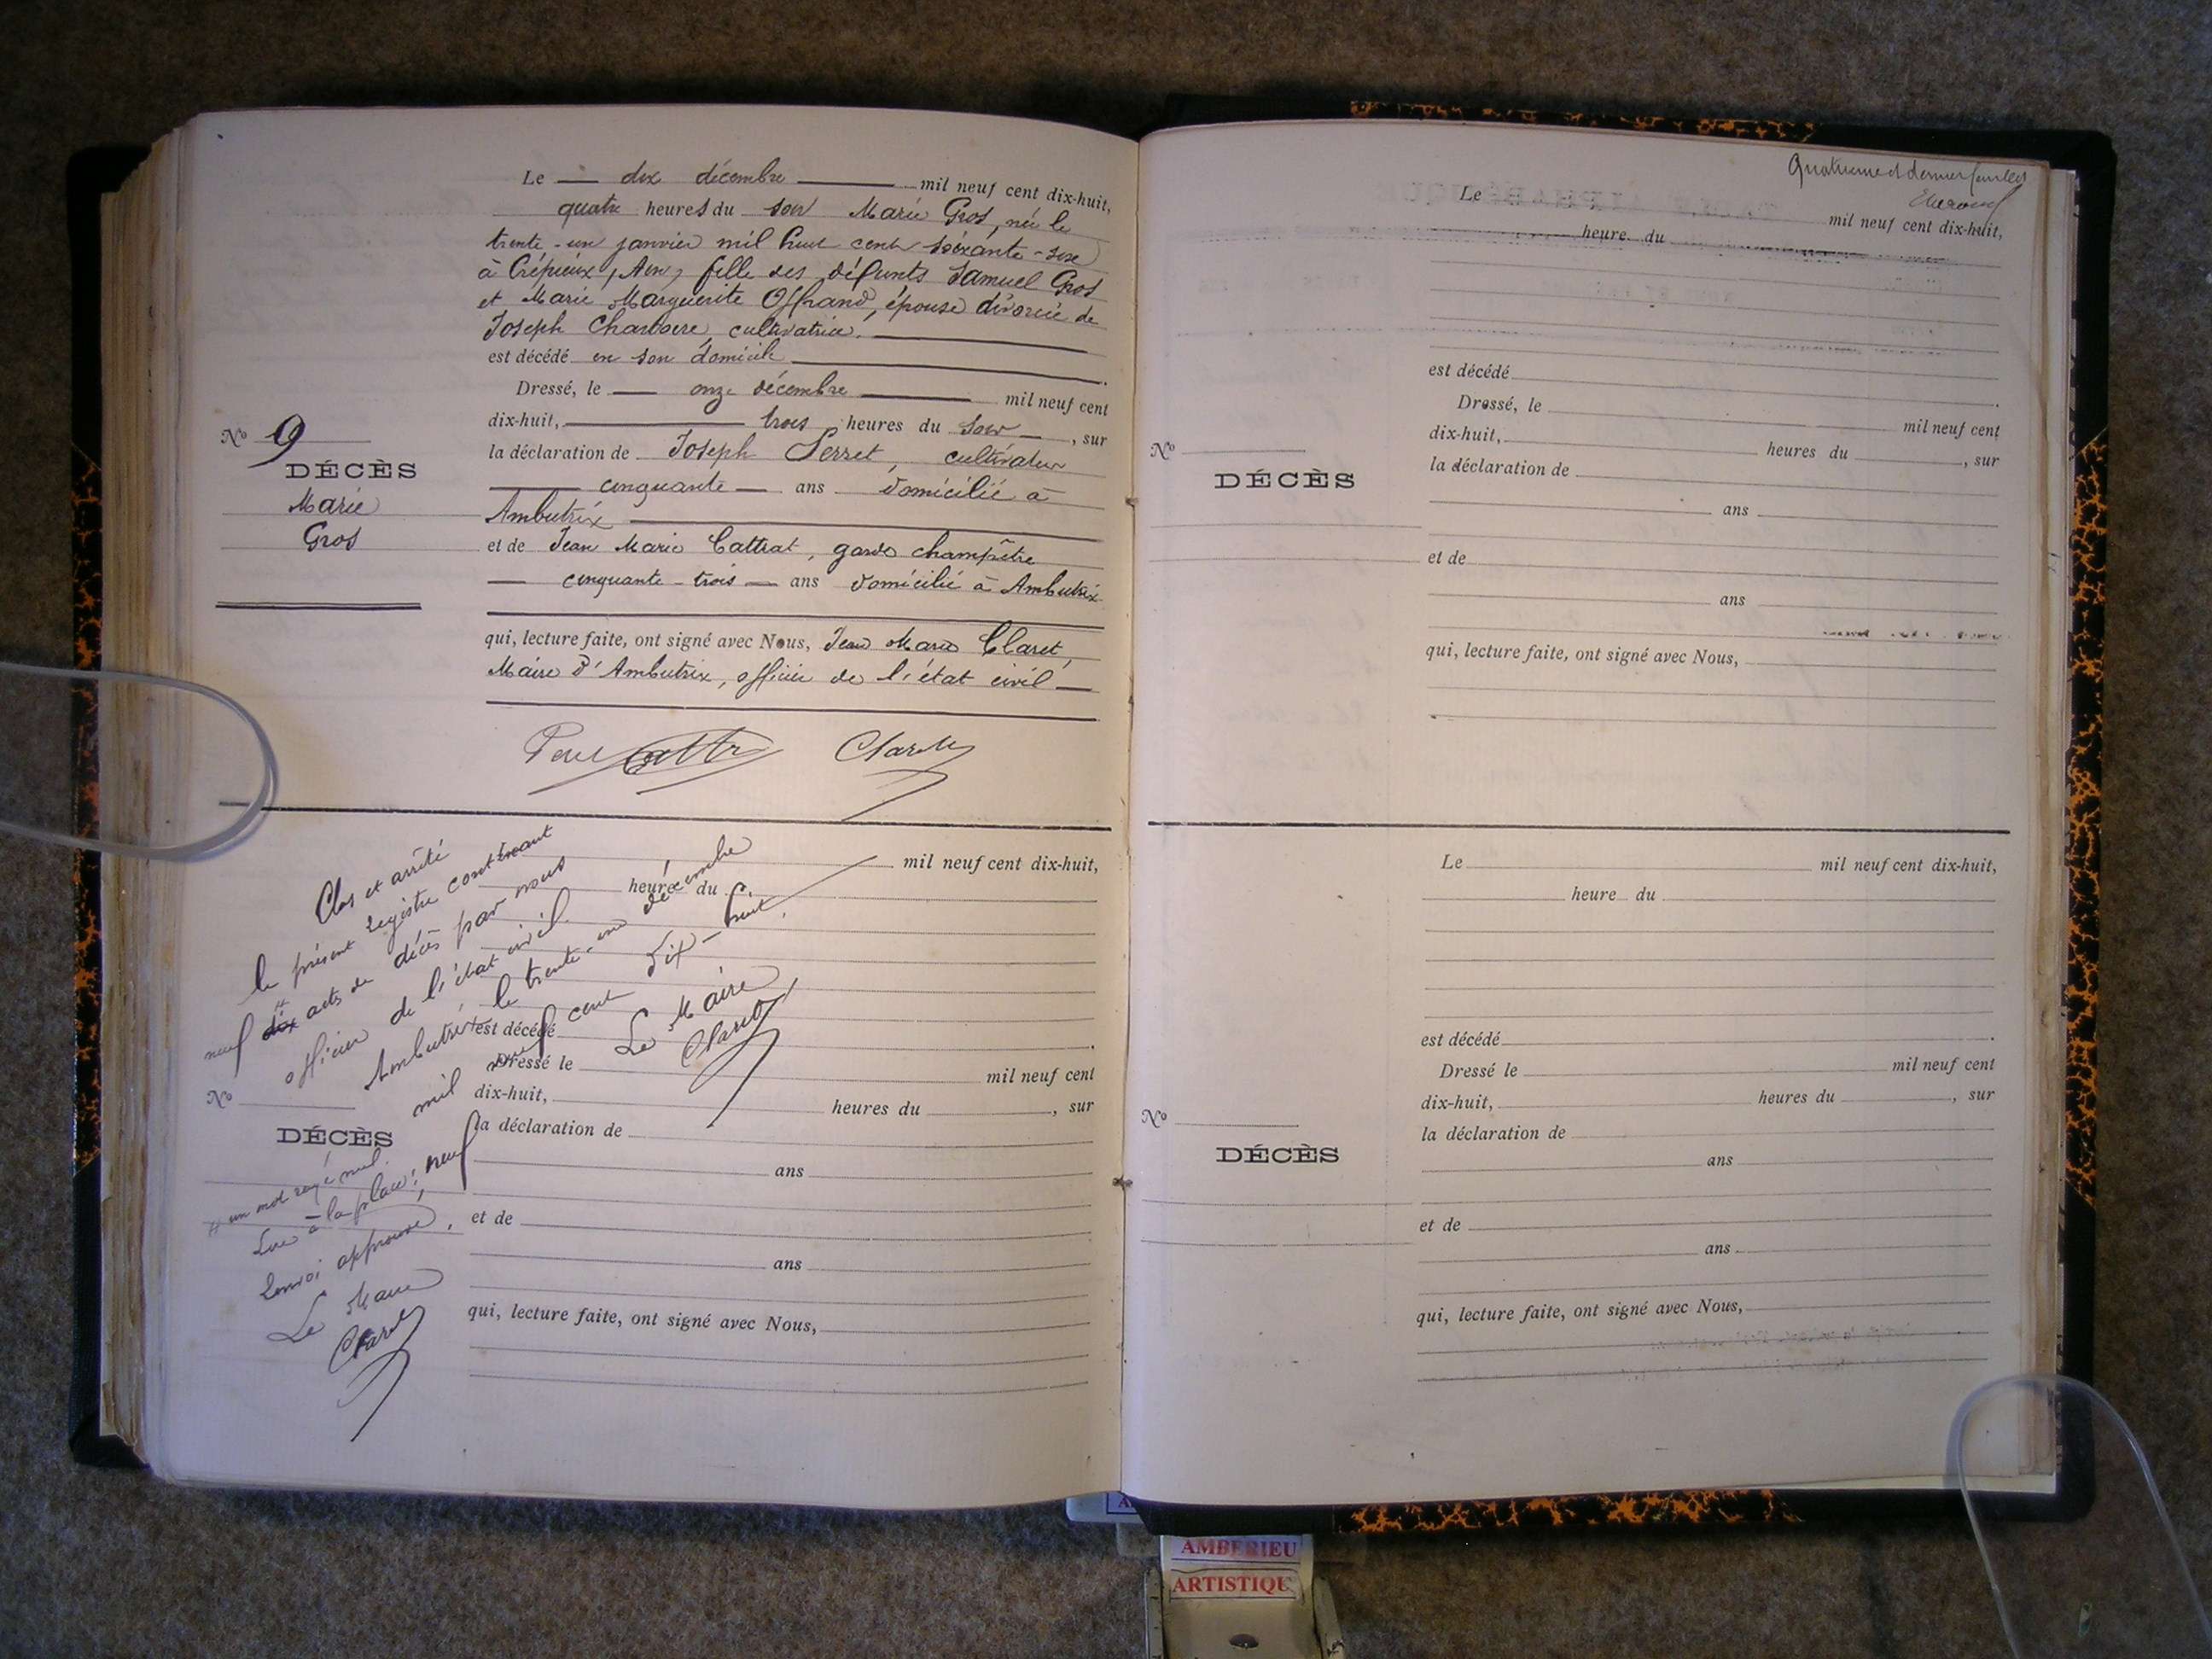 Le — dix décembre — mil neuf cent dix-huit,
quatre heures du soir Marie Gros, née le
trente-un janvier mil huit cent soixante-seize
à Crépieux, Ain, fille des défunts Samuel Gros
et Marie Marguerite Offrand, épouse divorcée de
Joseph cultivatrice.
est décédé en son domicile
Dressé, le — onze décembre — mil neuf cent
dix-huit, — trois heures du soir —, sur
la déclaration de Joseph Perret, cultivateur
— cinquante — ans domicilié à
Ambutrix
et de Jean Marie Cattrat, garde champêtre
— cinquante-trois — ans domicilié à Ambutrix
qui, lecture faite, ont signé avec Nous, Jean Marie Claret,
Maire d'Ambutrix, officier de l'état civil —
Claret
No 9
DÉCÈS
Marie
Gros
Clos et arrêté
le présent registre contenant
neuf dix actes de décès par nous
officier de l'état civil
Ambutrix le trente-un décembre
mil neuf cent dix-huit.
Le Maire
Claret
mil neuf cent dix-huit,
heure du
est décédé
Dressé le mil neuf cent
dix-huit, heures du , sur
la déclaration de
ans
et de
ans
qui, lecture faite, ont signé avec Nous,
No
DÉCÈS
un mot rayé nul.
Lire à la place: neuf
Renvoi approuvé.
Le Maire
Claret
Quatrième et dernier feuillet
Le mil neuf cent dix-huit,
heure du
est décédé
Dressé, le mil neuf cent
dix-huit, heures du , sur
la déclaration de
ans
et de
ans
qui, lecture faite, ont signé avec Nous,
No
DÉCÈS
Le mil neuf cent dix-huit,
heure du
est décédé
Dressé le mil neuf cent
dix-huit, heures du , sur
la déclaration de
ans
et de
ans
qui, lecture faite, ont signé avec Nous,
No
DÉCÈS
AMBERIEU
ARTISTIQU